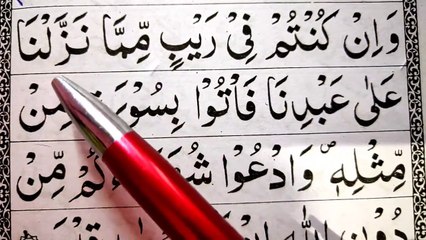 وَاِنْ كُنْتُمْ فِيْ رَيْبٍ مِّمَّا نَزَّلْنَا
عَلٰى عَبْدِنَا فَاْتُوْا بِسُوْرَةٍ مِّنْ
مِّثْلِهٖ ۪ وَادْعُوْا مِّنْ
دُوْنِ اللّٰهِ